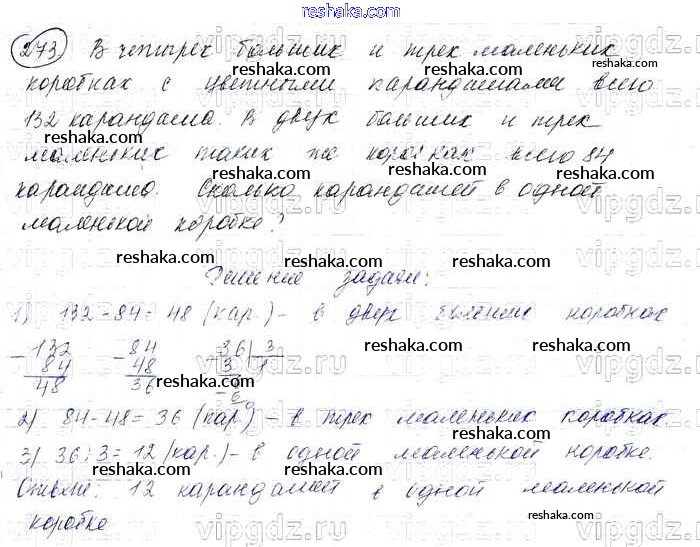 reshaka.com
273 В четырех больших и трех маленьких
коробках с цветными карандашами всего
132 карандаша. В двух больших и трех
маленьких таких же коробках всего 84
карандаша. Сколько карандашей в одной
маленькой коробке?
Решение задачи:
1) 132 - 84 = 48 (кар.) - в двух больших коробках
132 84 36 3
84 48 3
48 36 6
2) 84 - 48 = 36 (кар) - в трех маленьких коробках
3) 36 : 3 = 12 (кар.) - в одной маленькой коробке.
Ответ: 12 карандашей в одной маленькой
коробке